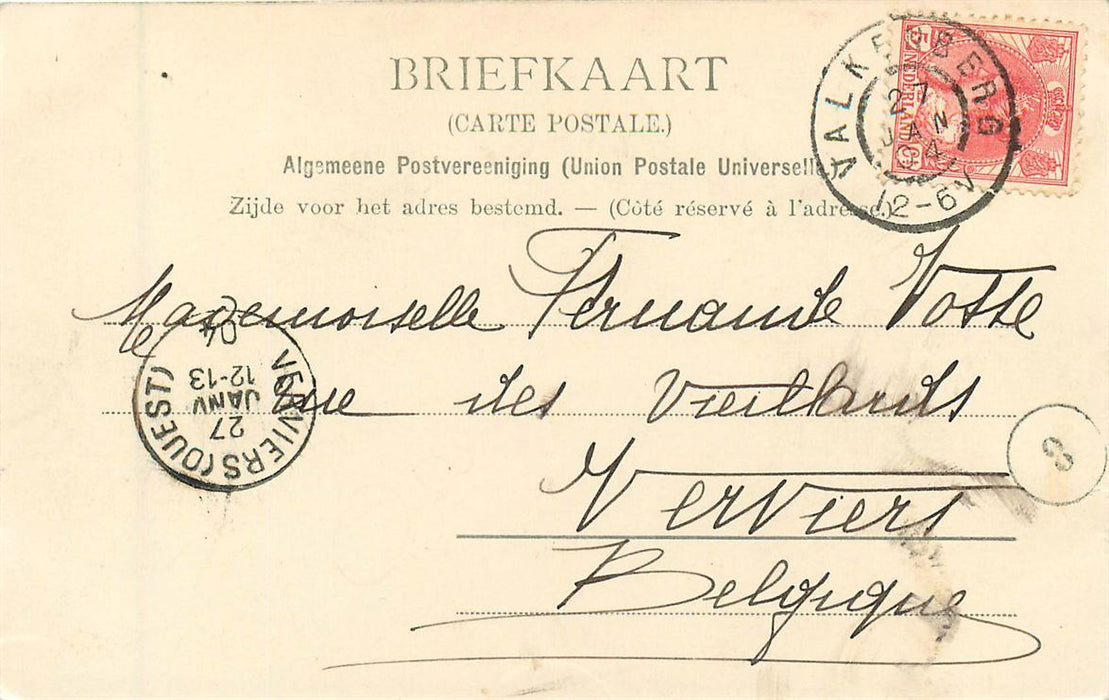 BRIEFKAART
(CARTE POSTALE.)
Algemeene Postvereeniging (Union Postale Universelle).
Zijde voor het adres bestemd. — (Côté réservé à l'adresse.)
VALKENBERG
27
JAN
04
12-6V
5 NEDERLAND Ct
Mademoiselle Fernande Vosse
rue des Vieillards
Verviers
Belgique
VERVIERS (OUEST)
27
JANV
12-13
04
3